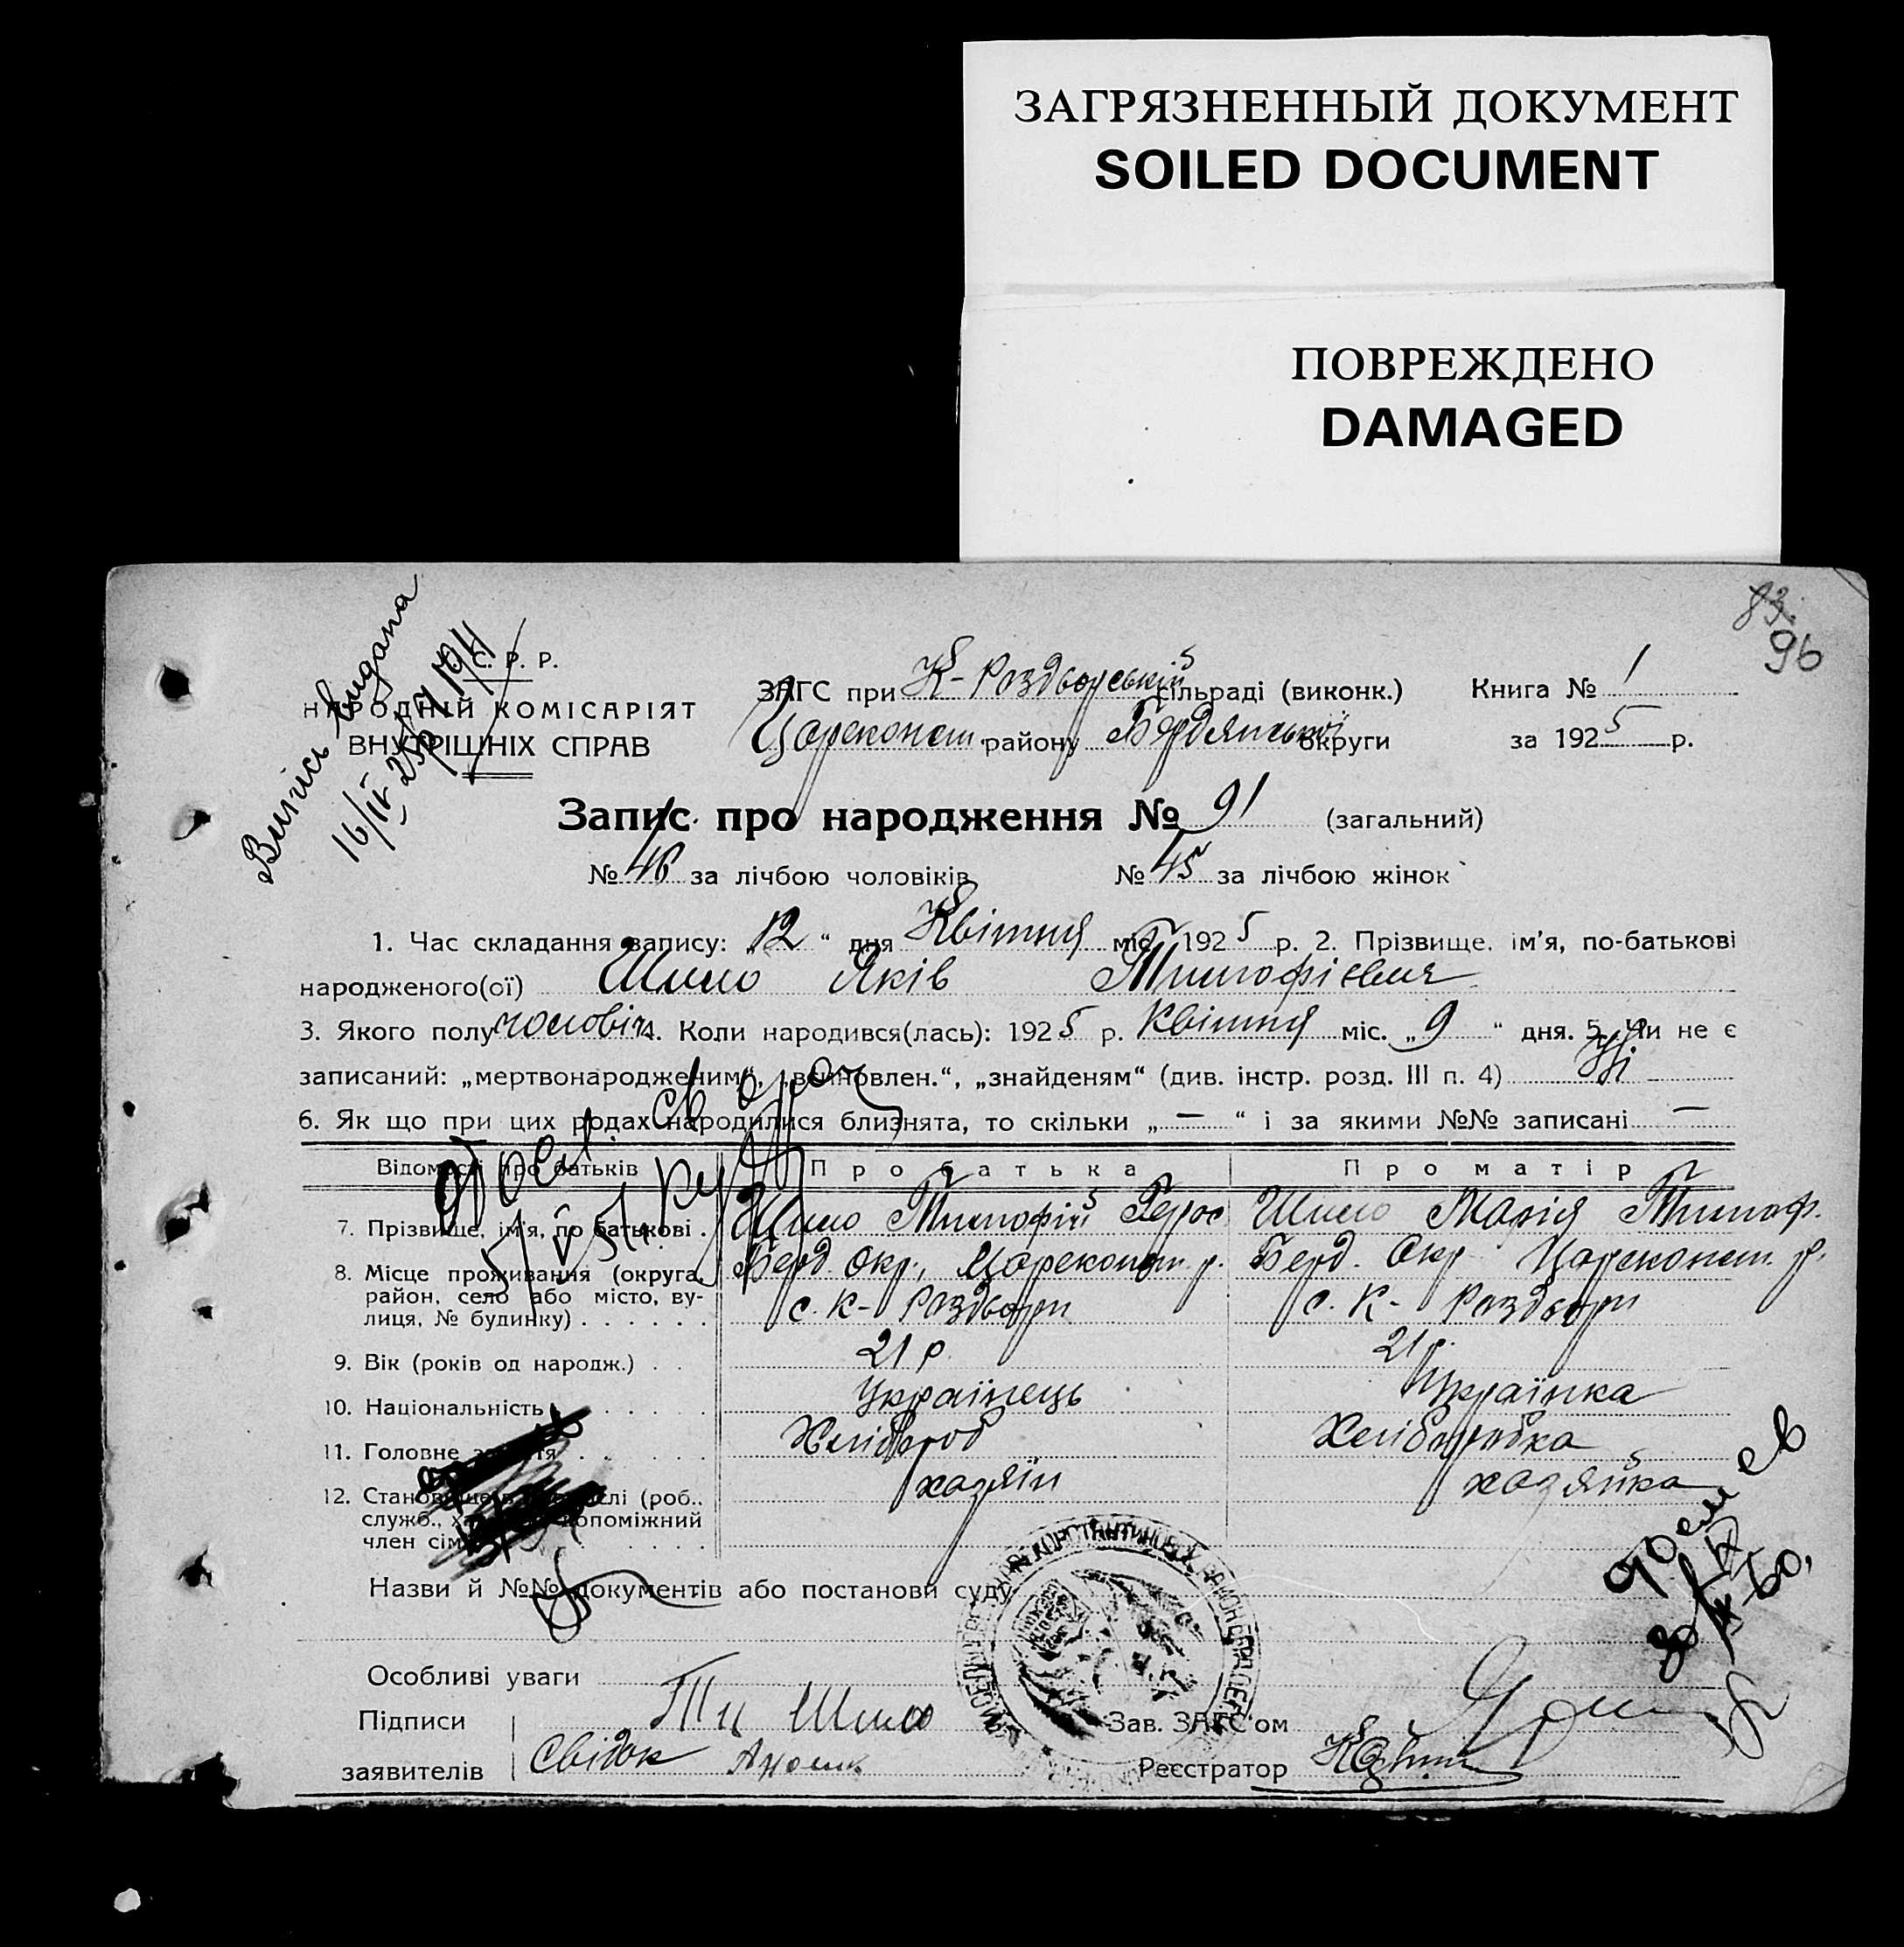 ЗАГРЯЗНЕННЫЙ ДОКУМЕНТ
SOILED DOCUMENT
ПОВРЕЖДЕНО
DAMAGED
83.
96
Випись видана
С. Р. Р.
НАРОДНІЙ КОМІСАРІЯТ
ВНУТРІШНІХ СПРАВ
ЗАГС при К-Роздорській сільраді (виконк.) Книга № 1
Цареконст. району Бердянської округи за 1925 р.
Запис про народження № 91 (загальний)
№ 46 за лічбою чоловіків № 45 за лічбою жінок
1. Час складання запису: „12“ дня Квітня міс. 1925 р. 2. Прізвище, ім’я, по-батькові
народженого(ої) Шило Яків Тимофієвич
3. Якого полу чоловіч. 4. Коли народився(лась): 1925 р. Квітня міс. „9“ дня. 5. Чи не є
записаний: „мертвонародженим“, „встановлен.“, „знайденям“ (див. інстр. розд. III п. 4) Ні.
6. Як що при цих родах народилися близнята, то скільки „—“ і за якими №№ записані —
Відомості про батьків Про батька Про матір
7. Прізвище, ім’я, по батькові . Шило Тимофій Шило Марія Тимоф.
8. Місце проживання (округа, Берд. Окр., Цареконст. р. Берд. Окр Цареконст. р.
район, село або місто, ву- с. К-Роздори с. К-Роздори
лиця, № будинку) . . . . . .
9. Вік (років од народж.) . . 21 р. 21 р.
10. Національність . . . . . Українець Українка
11. Головне заняття . . . . Хлібороб Хліборобка
12. Становище в промислі (роб., хазяїн хазяйка
служб., допоміжний
член сім
Назви й №№ документів або постанови суду
Особливі уваги
Підписи Шило Зав. ЗАГС’ом
заявителів Свідок Реєстратор